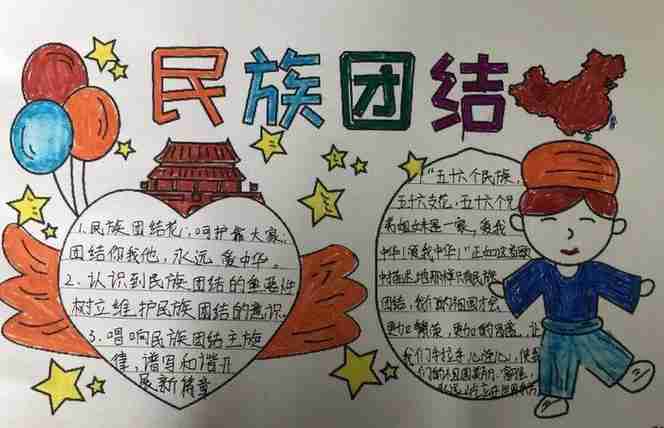 民族团结
1.民族团结花,呵护靠大家,
团结你我他,永远爱中华。
2.认识到民族团结的重要性
树立维护民族团结的意识.
3.唱响民族团结主旋
律,谱写和谐开
展新篇章
"五十六个民族,
五十六支花,五十六个兄
弟姐妹是一家,爱我
中华!爱我中华!"正如这首歌
中描述地那样只有民族
团结,我们的祖国才会
更加繁荣,更加的,让
我们手拉手心连心,使
我们的祖国美丽、富强,